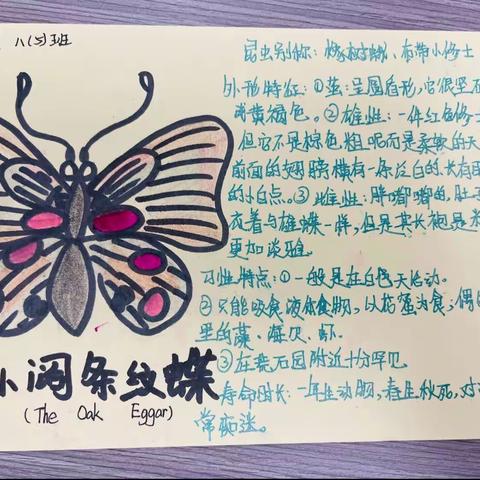 八(5)班
小阔条纹蝶
(The Oak Eggar)
昆虫别称：橡树蛾、布带小修士
外形特征：①茧：呈圆盾形，它很坚
黄褐色。②雄性：一件红色修士
但它不是棕色粗呢而是柔软的天
前面的翅膀横有一条泛白的，长有
的小白点。③雌性：胖嘟嘟的，肚
衣着与雄蝶一样，但是其长袍是
更加淡雅。
习性特点：①一般是在白色天活动。
②只能吸食液体食物，以花蜜为食；偶
里的藻、海贝、虾
③在石园附近十分罕见
寿命时长：一年生动物，春生秋死，对
常痴迷。